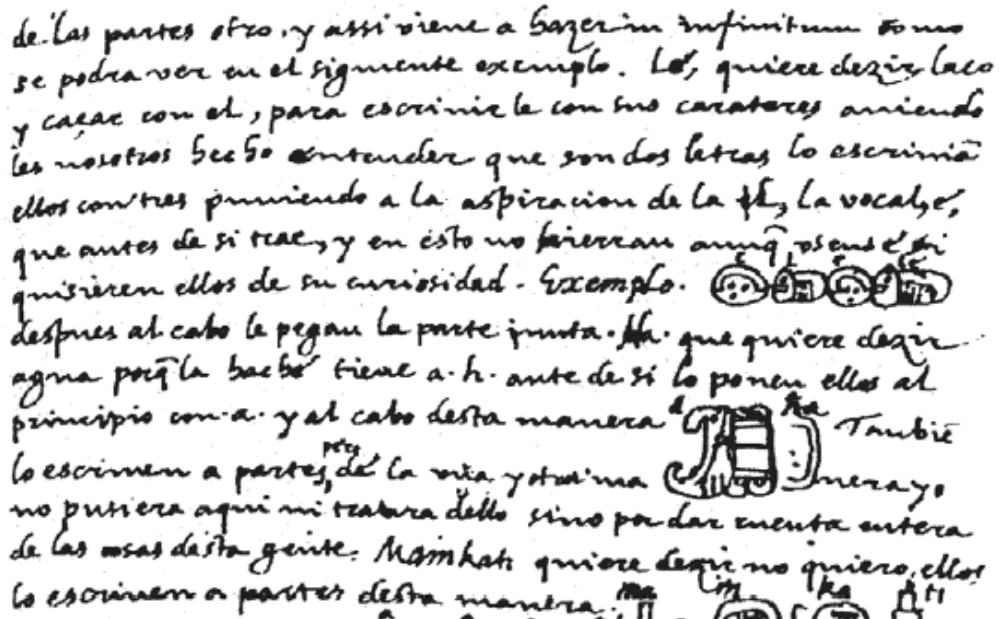 de las partes otro, y assi viene a hazer in infinitum como
se podra ver en el siguiente exemplo. Lé, quiere dezir laço
y caçar con el, para escrivir le con sus carateres aviendo
les nosotros hecho entender que son dos letras lo escrivian
ellos con tres puniendo a la aspiracion de la l, la vocal, é,
que antes de si trae, y en esto no hierran aunq̃ osense si
quisieren ellos de su curiosidad. Exemplo. e l e lé
despues al cabo le pegan la parte junta. Ha. que quiere dezir
agua porq̃ la haché tiene a. h. ante de si lo ponen ellos al
principio con a. y al cabo desta manera a ha Tambiẽ
lo escriven a partes, pero de la una y otra ma nera yo
no pusiera aqui ni tratara dello sino por dar cuenta entera
de las cosas desta gente. Mainkati quiere dezir no quiero, ellos
lo escriven a partes desta manera. ma i n ka ti